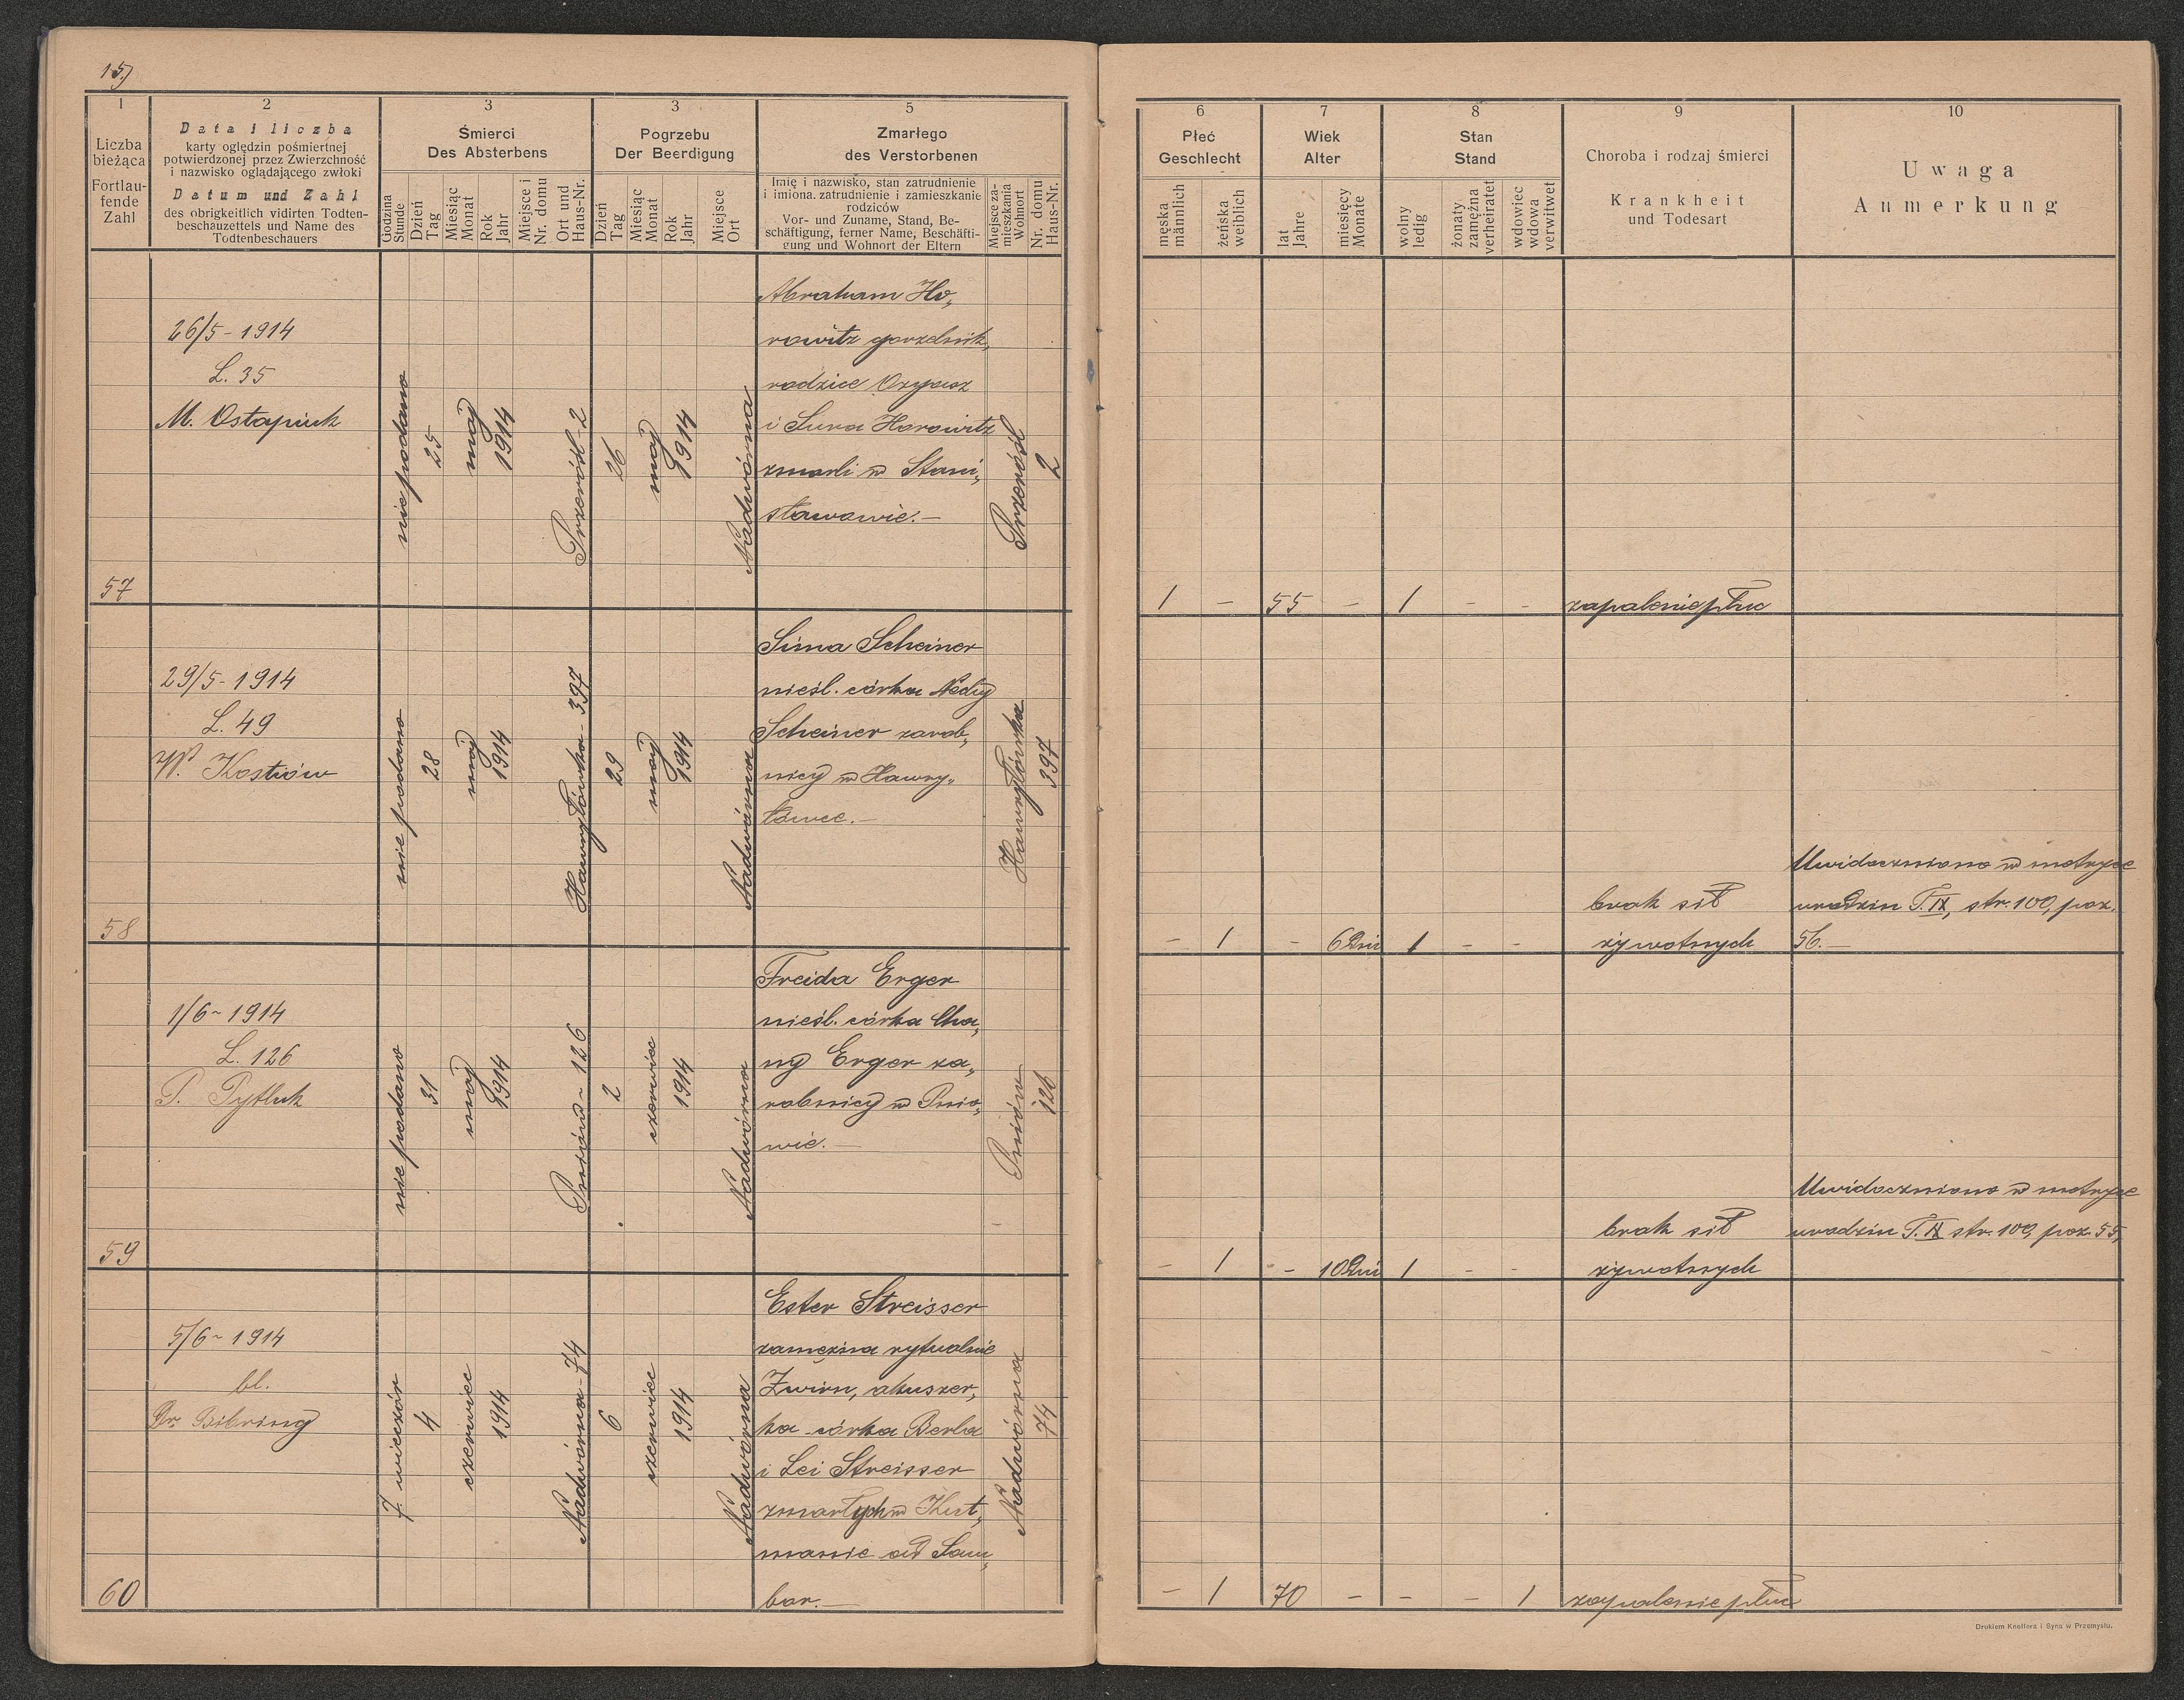 15)
1
2
3
3
5
6
7
8
9
10
Liczba
bieżąca
Fortlau-
fende
Zahl
Data i liczba
karty oględzin pośmiertnej
potwierdzonej przez Zwierzchność
i nazwisko oglądającego zwłoki
Datum und Zahl
des obrigkeitlich vidirten Todten-
beschauzettels und Name des
Todtenbeschauers
Śmierci
Des Absterbens
Godzina
Stunde
Dzień
Tag
Miesiąc
Monat
Rok
Jahr
Miejsce i
Nr. domu
Ort und
Haus-Nr.
Pogrzebu
Der Beerdigung
Dzień
Tag
Miesiąc
Monat
Rok
Jahr
Miejsce
Ort
Zmarłego
des Verstorbenen
Imię i nazwisko, stan zatrudnienie
i imiona, zatrudnienie i zamieszkanie
rodziców
Vor- und Zuname, Stand, Be-
schäftigung, ferner Name, Beschäfti-
gung und Wohnort der Eltern
Miejsce za-
mieszkania
Wohnort
Nr. domu
Haus-Nr.
Płeć
Geschlecht
męska
männlich
żeńska
weiblich
Wiek
Alter
lat
Jahre
miesięcy
Monate
Stan
Stand
wolny
ledig
żonaty
zamężna
verheiratet
wdowiec
wdowa
verwitwet
Choroba i rodzaj śmierci
Krankheit
und Todesart
Uwaga
Anmerkung
57
26/5 - 1914
L. 35
M. Ostapiuk
nie podano
25
maj
1914
Przerośl - 2
26
maj
1914
Nadwórna
Abraham Ho„
rowitz gorzelnik,
rodzice Ozyasz
i Sura Horowitz
zmarli w Stani„
sławowie. —
Przerośl
2
1 - 55 - 1 - -
zapalenie płuc
58
29/5 - 1914
L. 49
W. Kostiów
nie podano
28
maj
1914
Hawryłówka - 397
29
maj
1914
Nadwórna
Sima Scheiner
nieśl. córka Nechy
Scheiner zarob„
nicy w Hawry„
łówce. —
Hawryłówka
397
- 1 - 6 dni 1 - -
brak sił
żywotnych
Uwidoczniono w metryce
urodzin T. IX, str. 100, poz.
56. —
59
1/6 - 1914
L. 126
P. Pytluk
nie podano
31
maj
1914
Pniów - 126
2
czerwiec
1914
Nadwórna
Freida Erger
nieśl. córka Cha„
ny Erger za„
robnicy w Pnio„
wie. —
Pniów
126
- 1 - 10 dni 1 - -
brak sił
żywotnych
Uwidoczniono w metryce
urodzin T. IX str. 100, poz. 55,
60
5/6 - 1914
bl.
Dr. Bibring
7. wieczór
4
czerwiec
1914
Nadwórna - 74
6
czerwiec
1914
Nadwórna
Ester Streisser
zamężna rytualnie
Zwirn, akuszer„
ka córka Berla
i Lei Streisser
zmarłych w
bor. —
Nadwórna
74
- 1 70 - - - 1
zapalenie płuc
Drukiem Knollera i Syna w Przemyślu.